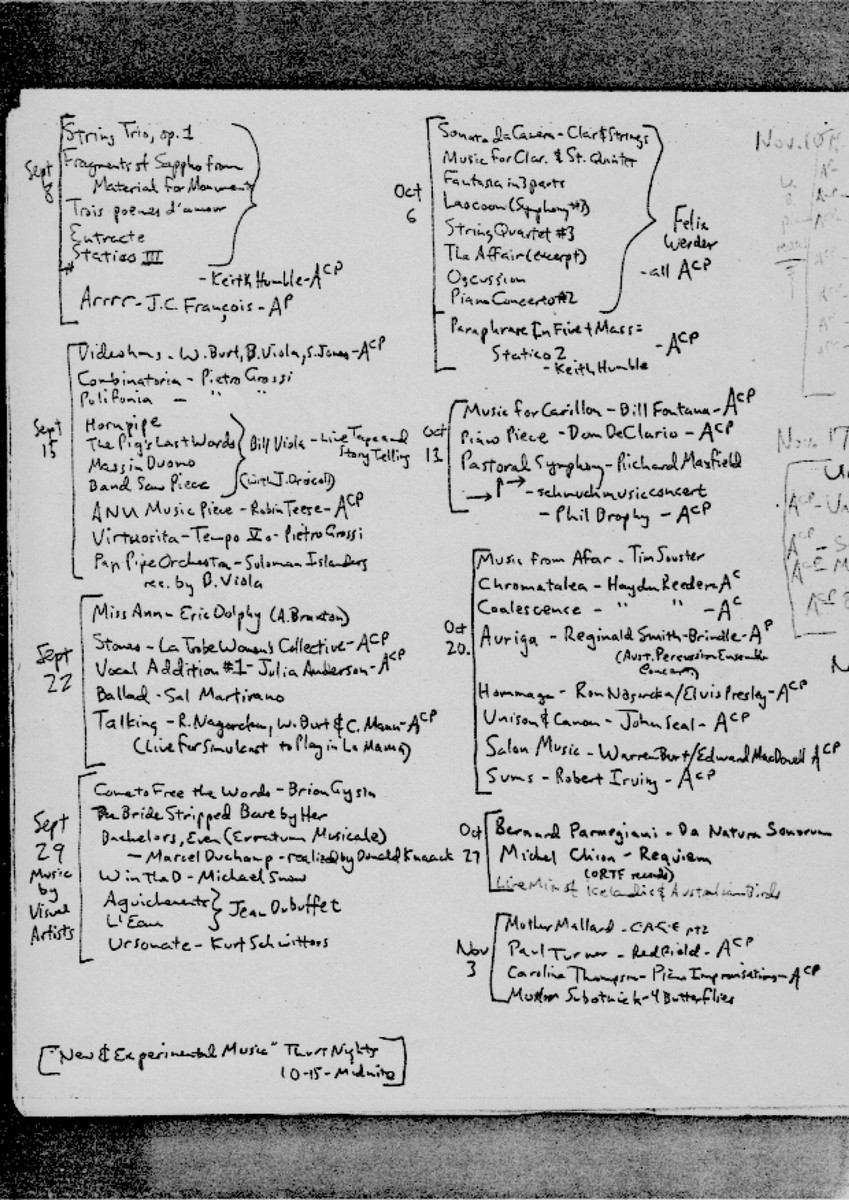 Sept 8
String Trio, op. 1
Fragments of Sappho from
Material for Monument
Trois poemes d'amour
Entracte
Statico III
- Keith Humble - ACP
Arrrr - J.C. François - AP
Sept 15
Videohms - W. Burt, B. Viola, S. Jones - ACP
Combinatoria - Pietro Grossi
Polifonia - " "
Hornpipe
The Pig's Last Words
Mass in Duomo
Band Saw Piece
Bill Viola - Live Tape and
Story Telling
(with J. Driscoll)
ANU Music Piece - Robin Teese - ACP
Virtuosita - Tempo Vo - Pietro Grossi
Pan Pipe Orchestra - Soloman Islanders
rec. by B. Viola
Sept 22
Miss Ann - Eric Dolphy (A. Braxton)
Stones - La Trobe Women's Collective - ACP
Vocal Addition #1 - Julia Anderson - ACP
Ballad - Sal Martirano
Talking - R. Nagorcka, W. Burt & C. Mann - ACP
(Live For Simulcast to Play in La Mama)
Sept 29
Music by Visual Artists
Come to Free the Words - Brion Gysin
The Bride Stripped Bare by Her
Bachelors, Even (Erratum Musicale)
- Marcel Duchamp - realized by Donald Knaack
W in the D - Michael Snow
Aguichements
L'Eau
Jean Dubuffet
Ursonate - Kurt Schwitters
["New & Experimental Music" Thurs Nights
10-15 - Midnite]
Oct 6
Sonata da Camera - Clar & Strings
Music for Clar. & St. Quintet
Fantasia in 3 parts
Laocoon (Symphony #3)
String Quartet #3
The Affair (excerpt)
Oscussion
Piano Concerto #2
Felix
Werder
- all ACP
Paraphrase In Five + Mass =
Statico 2
- Keith Humble
- ACP
Oct 13
Music for Carillon - Bill Fontana - ACP
Piano Piece - Dom DeClario - ACP
Pastoral Symphony - Richard Maxfield
→ ↑ → - schmuchmusicconcert
- Phil Brophy - ACP
Oct 20.
Music from Afar - Tim Souster
Chromatalea - Haydn Reeder - AC
Coalescence - " " - AC
Auriga - Reginald Smith-Brindle - AP
(Aust. Percussion Ensemble
Concert)
Hommage - Ron Nagorcka/Elvis Presley - ACP
Unison & Canon - John Seal - ACP
Salon Music - Warren Burt/Edward MacDowell ACP
Sums - Robert Irving - ACP
Oct 27
Bernard Parmegiani - Da Natura Sonorum
Michel Chion - Requiem
(ORTF records)
Live Mix of Icelandic & Australian Birds
Nov 3
Mother Mallard - C.A.G.E pt 2
Paul Turner - Redfield - ACP
Caroline Thompson - Piano Improvisations - ACP
Morton Subotnick - 4 Butterflies
Nov. 10
Nov 17